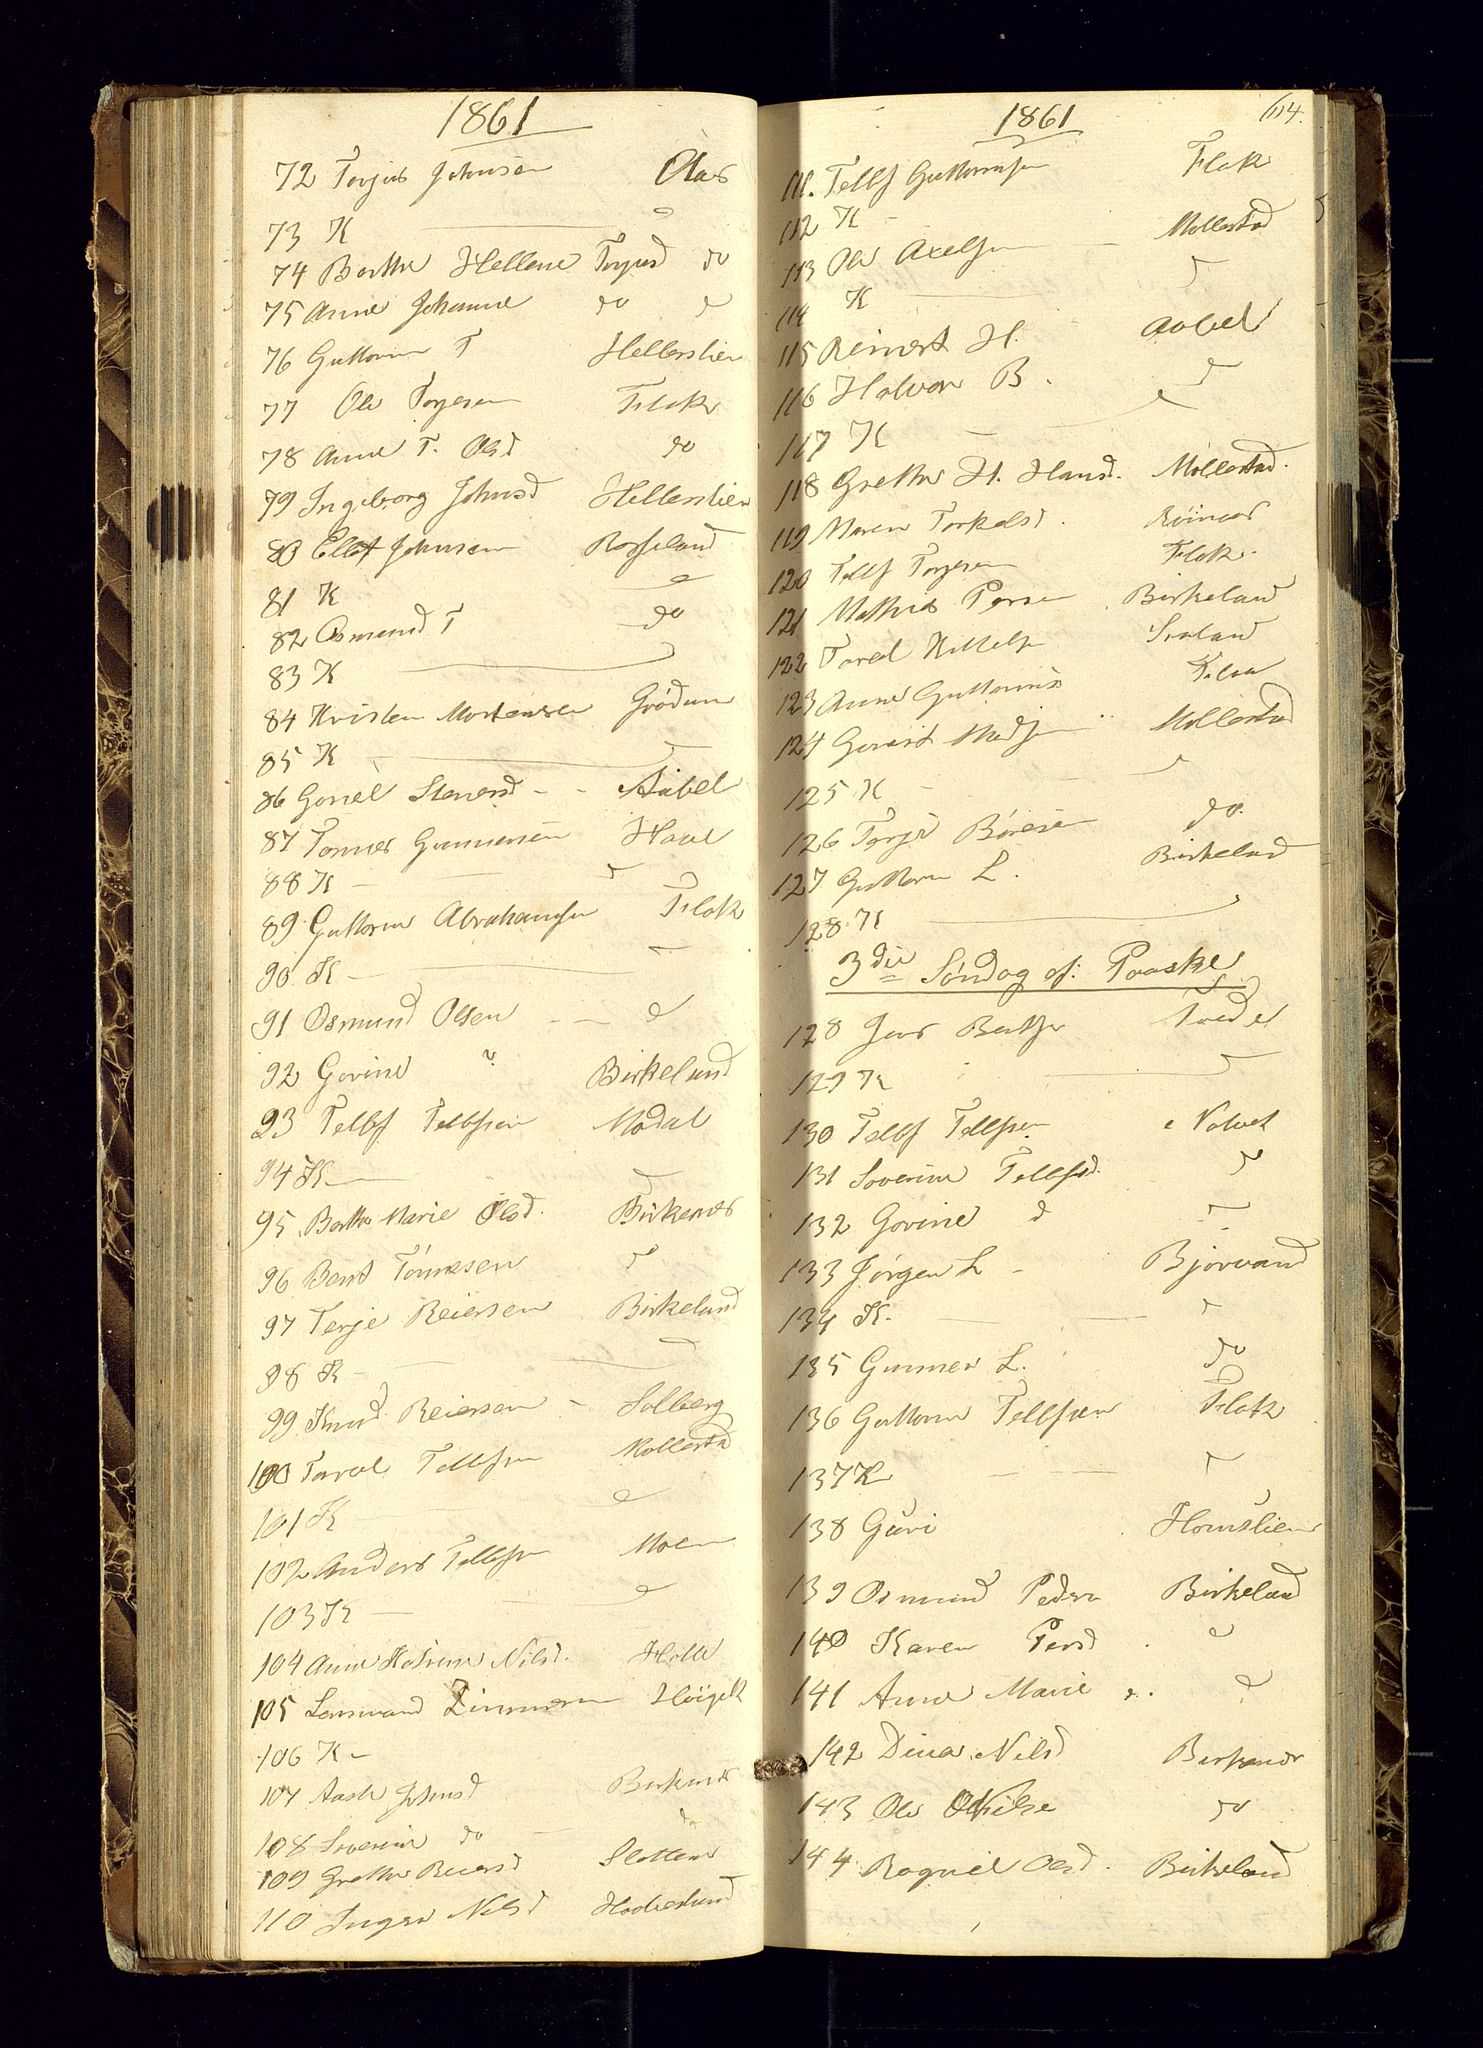 1861
72 Torjus Johnsen Oläs
73 K
74 Berthe Hellene Torjusd do
75 Anne Johanne do d
76 Guttorm T Hellerslien
77 Ole Torjesen Flak
78 Anne T. Olsd do
79 Ingeborg Johnsd Hellerslien
80 Ellef Johnsen Rosseland
81 K
82 Osmund T do
83 K
84 Kristen Mortensen Grödum
85 K
86 Goriel Steensd - - Aabel
87 Tomnes Gunnersen Haave
88 K
89 Guttorm Abrahamsen Flak
90 K
91 Osmund Olsen d
92 Govine " Birkeland
93 Tellef Tellefsen Modal
94 K
95 Berthe Marie Olsd. Birkenes
96 Bent Tönnesen d
97 Terje Reiersen Birkeland
98 K
99 Knud Reiersen - Solberg
100 Tarval Tellefsen Mollestad
101 K
102 Anders Tellefsen Moen
103 K
104 Anne Katrine Nilsd. Helle
105 Lensmand Zimmern
106 K -
107 Aasle Johnsd Birkenes
108 Severine do
109 Grethe Reiersd Slotten
110 Inger Nilsd
1861 114.
111. Tellef Guttormsen Flak
112 K
113 Ole Axelsen Mollestad
114 K
115 Reinert H. Aabel
116 Halvor B.
117 K
118 Grethe H. Hansd. Mollestad.
119 Maren Torkelsd. Röinaas
120 Tellef Torjesen Flak.
121 Mathias Persen Birkeland
122 Tarel Kittelsen
123 Anne Guttormsd
124 Gunist Madsen Mollestad
125 K
126 Torje Böresen do.
127 Guttorm L. Birkeland
128 K
3die Söndag ef: Paaske
128 Jens Bentsen Tveide
129 K
130 Tellef Tellefsen Natvet
131 Severine Tellefsd.
132 Govine d
133 Jörgen L - Bjorvand
134 K.
135 Gunner L. do
136 Guttorm Tellefsen Flak
137 K
138 Guri Homslien
139 Osmund Peders Birkeland
140 Karen Persd d
141 Anne Marie d
142 Dina Nilsd Birkenes
143 Ole do
144 Ragnil Olsd. Birkeland